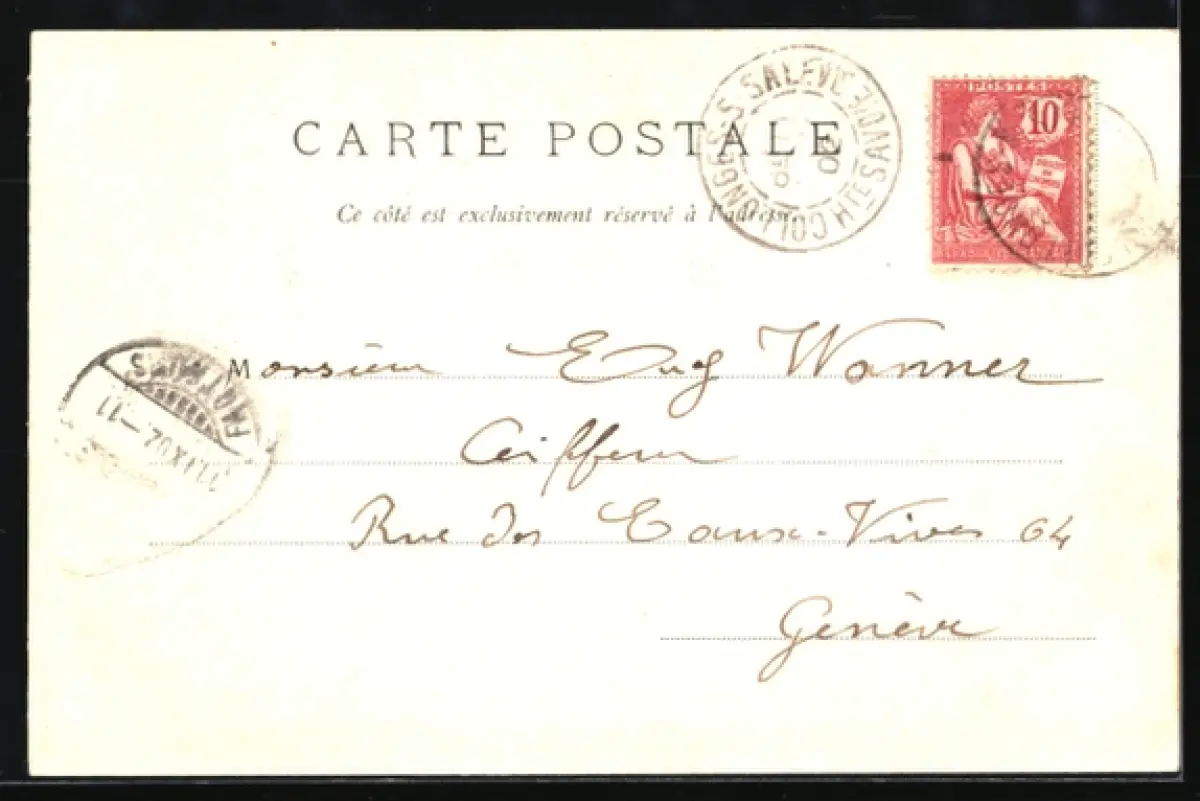 CARTE POSTALE
Ce côté est exclusivement réservé à l'adresse
COLLONGES-S-SALEVE HTE SAVOIE
POSTES
10
Monsieur Eug Wanner
Coiffeur
Rue des Eaux-Vives 64
Genève
FACTEURS